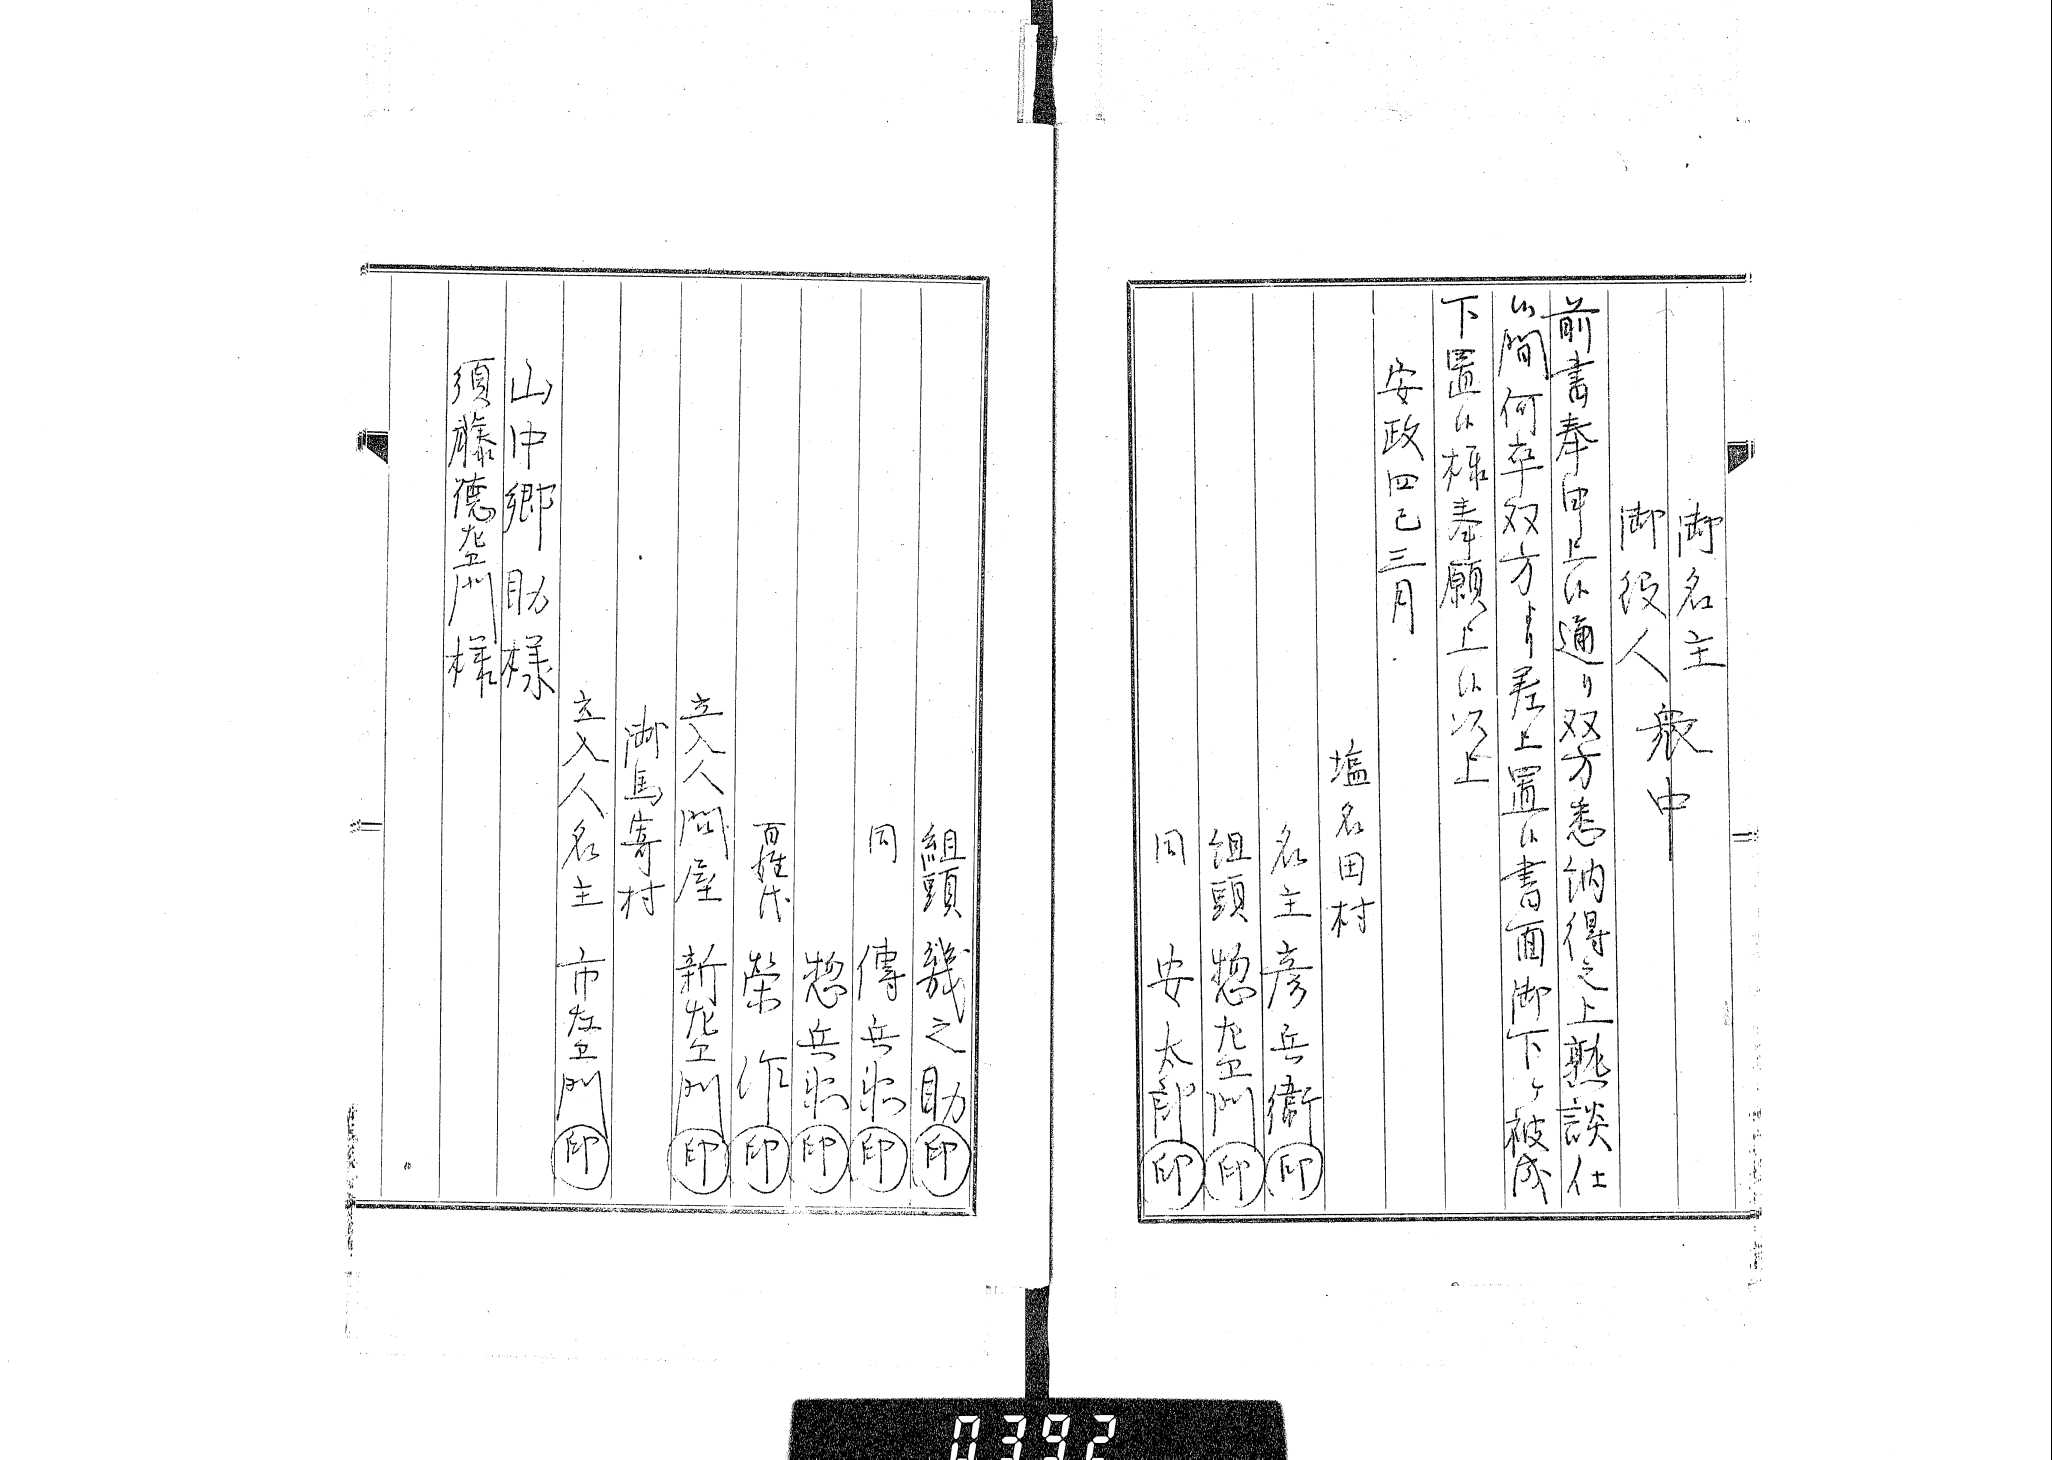 御名主
御役人 衆中
前書奉申上候通り双方悉納得之上熟談仕
候間何卒双方より差上置候書面御下ケ被成
下置候様奉願上候以上
安政四巳三月
塩名田村
名主 彦兵衛 印
組頭 惣左衛門 印
同 安太郎 印
組頭 幾之助 印
同 傳兵衛 印
惣兵衛 印
百姓代 榮作 印
立入人問屋 新左衛門 印
御馬寄村
立入人名主 市左衛門 印
山中郷助様
須藤徳左衛門様
0392